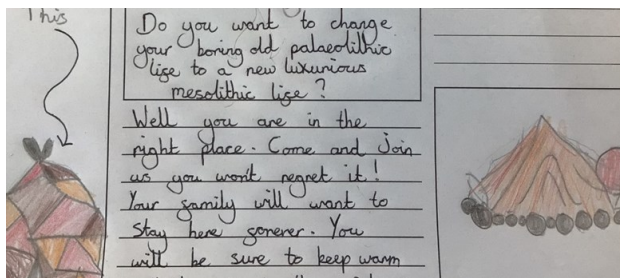 This
Do you want to change
your boring old palaeolithic
life to a new luxurious
mesolithic life?
Well you are in the
right place. Come and join
us you won't regret it!
Your family will want to
stay here forever. You
will be sure to keep warm